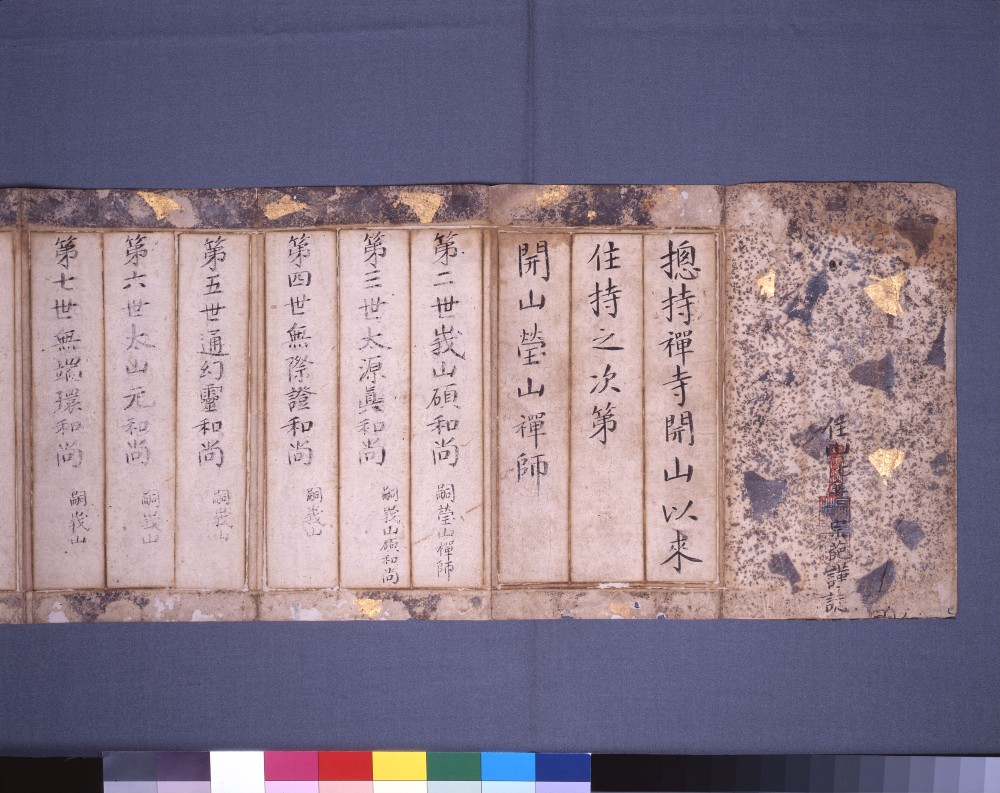 住山
記謹誌
摠持禪寺開山以來
住持之次第
開山瑩山禪師
第二世峩山碩和尚 嗣瑩山禪師
第三世太源真和尚 嗣峩山碩和尚
第四世無際證和尚 嗣峩山
第五世通幻靈和尚 嗣峩山
第六世太山元和尚 嗣峩山
第七世無端環和尚 嗣峩山